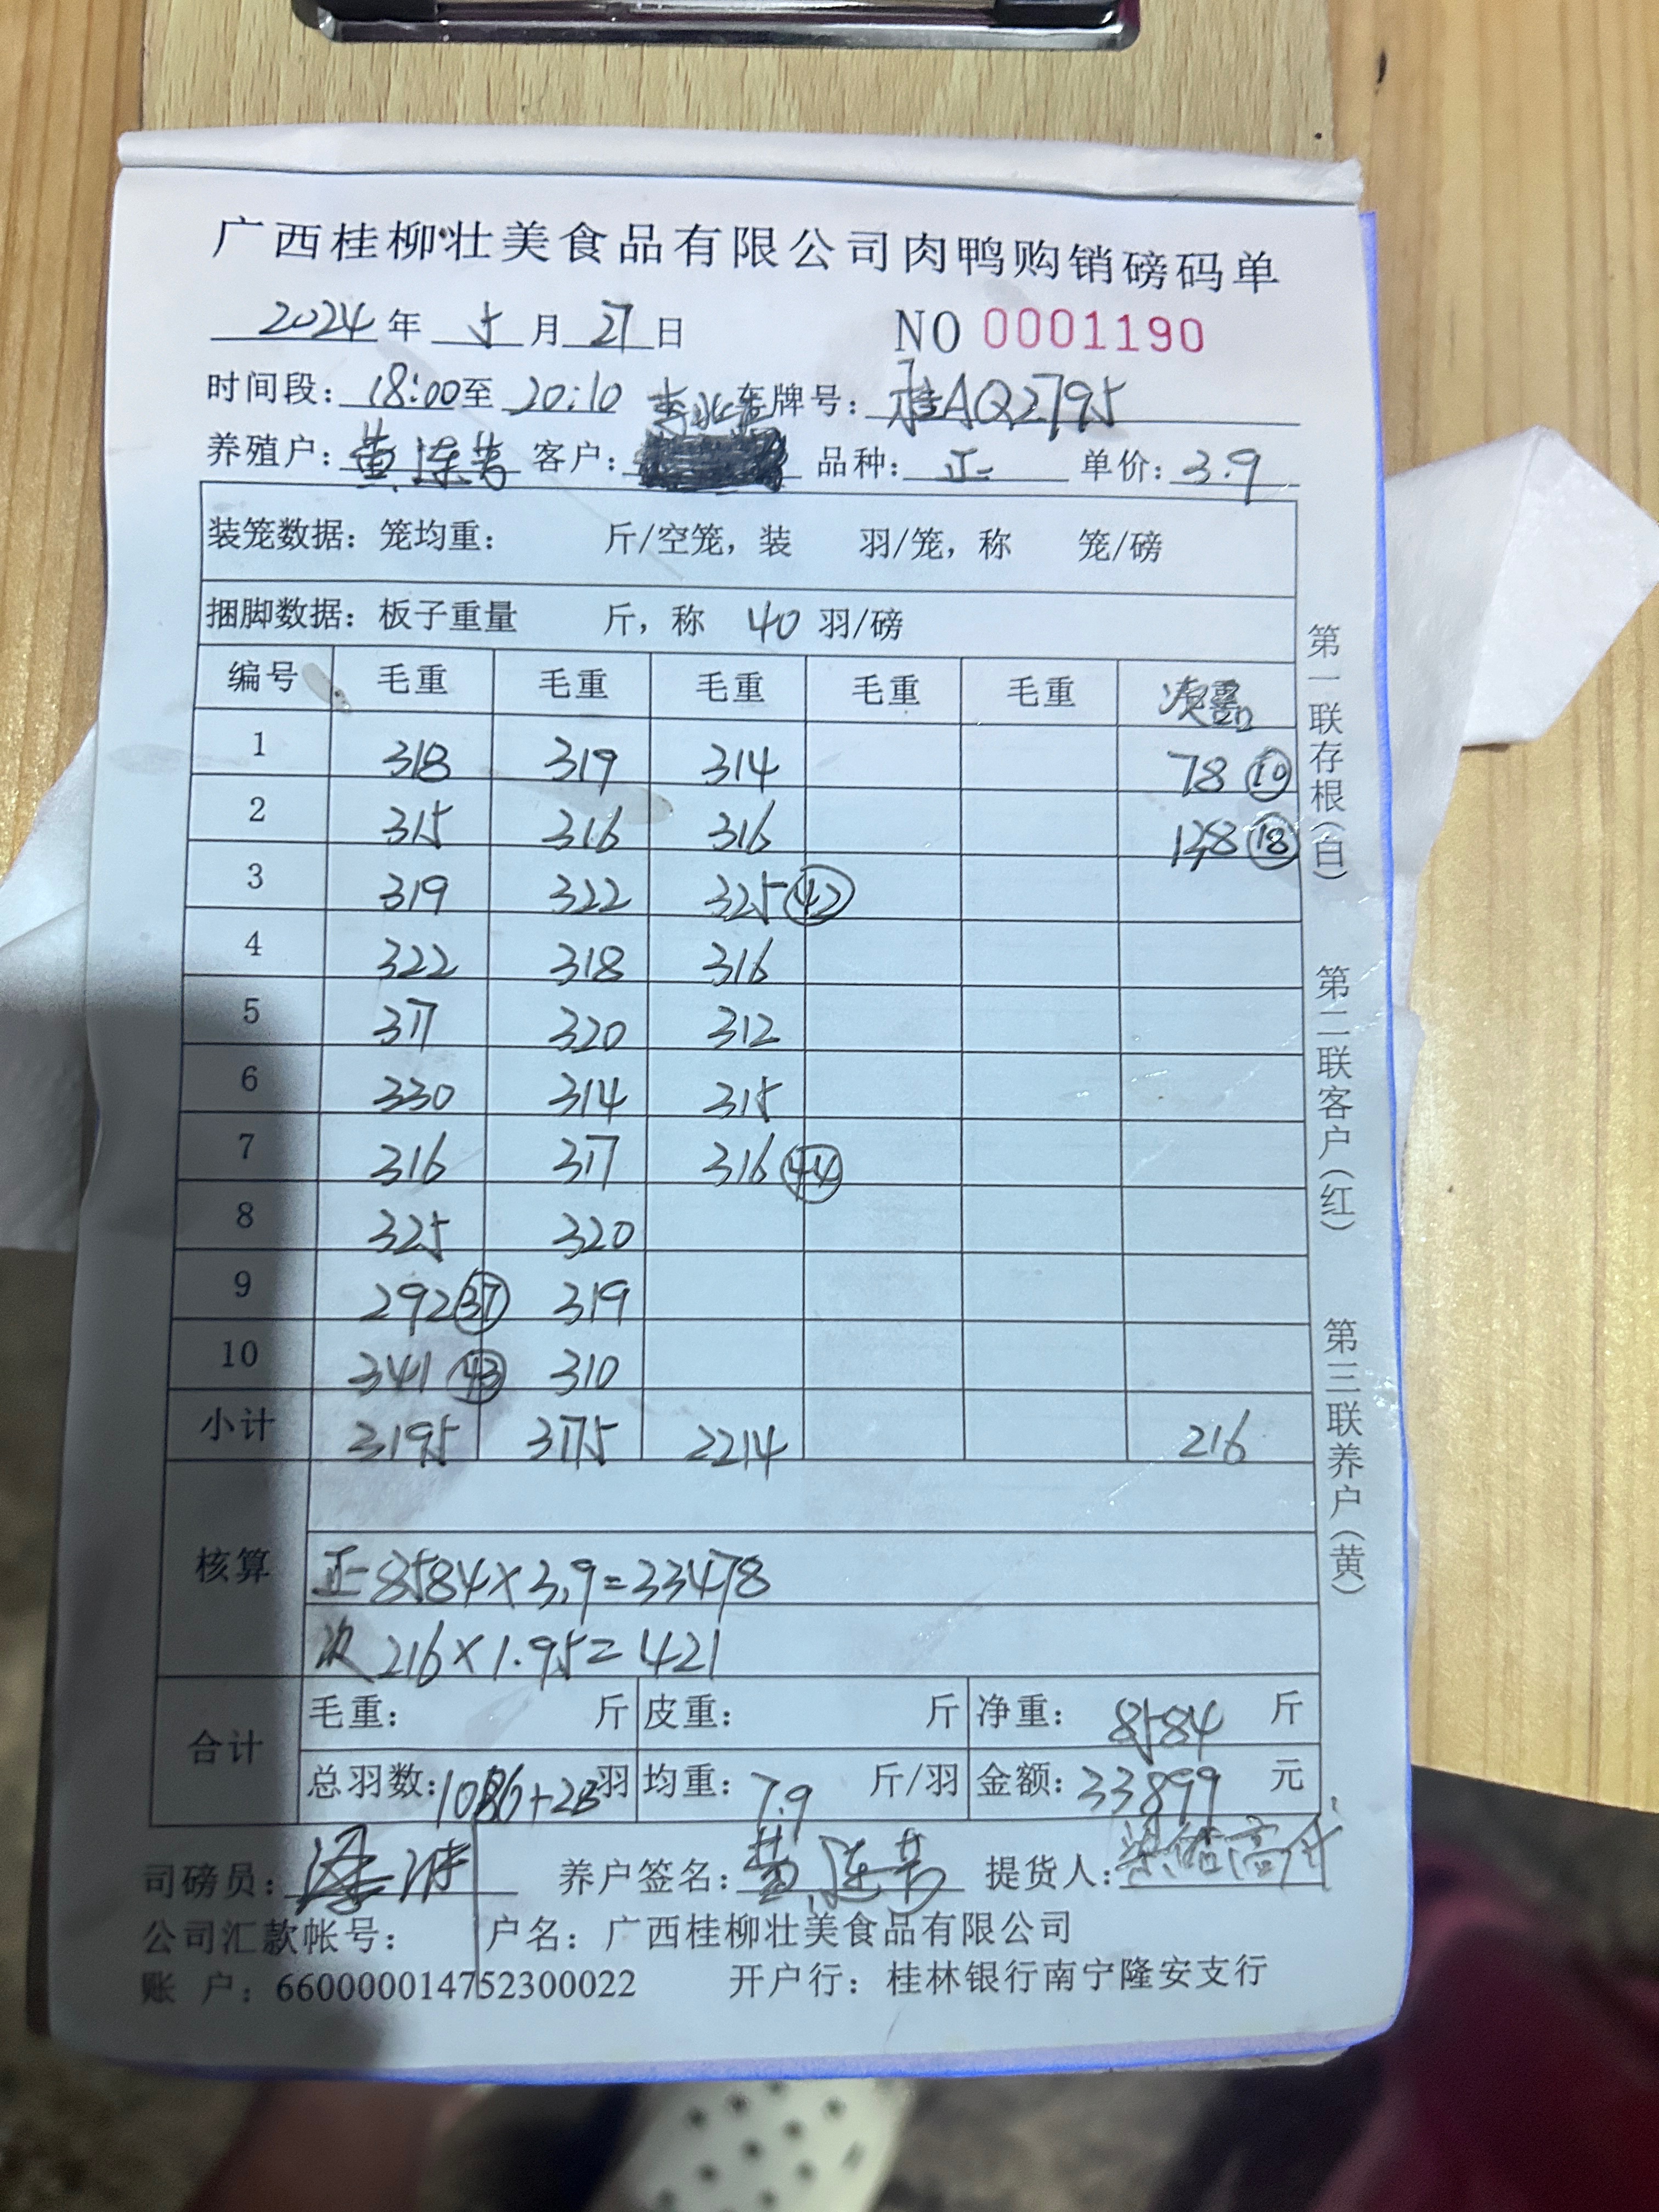 广西桂柳壮美食品有限公司肉鸭购销磅码单
2024年 5月27日 NO 0001190
时间段：18:00至20:10 车牌号：桂AQ2795
养殖户：黄连芳 客户： 品种：正 单价：3.9
装笼数据：笼均重： 斤/空笼，装 羽/笼，称 笼/磅
捆脚数据：板子重量 斤，称 40 羽/磅
编号 毛重 毛重 毛重 毛重 毛重 次
1 318 319 314 78 ⑩
2 315 316 316 138 ⑱
3 319 322 325 ㊷
4 322 318 316
5 317 320 312
6 330 314 315
7 316 317 316 ㊹
8 325 320
9 292 ㊲ 319
10 341 ㊸ 310
小计 3195 3175 2214 216
核算
正 8584×3.9=33478
次 216×1.95=421
合计
毛重： 斤 皮重： 斤 净重：8584 斤
总羽数：1086+28羽 均重：7.9 斤/羽 金额：33899 元
司磅员： 养户签名：黄连芳 提货人：
公司汇款帐号： 户名：广西桂柳壮美食品有限公司
账 户：660000014752300022 开户行：桂林银行南宁隆安支行
第一联存根（白） 第二联客户（红） 第三联养户（黄）